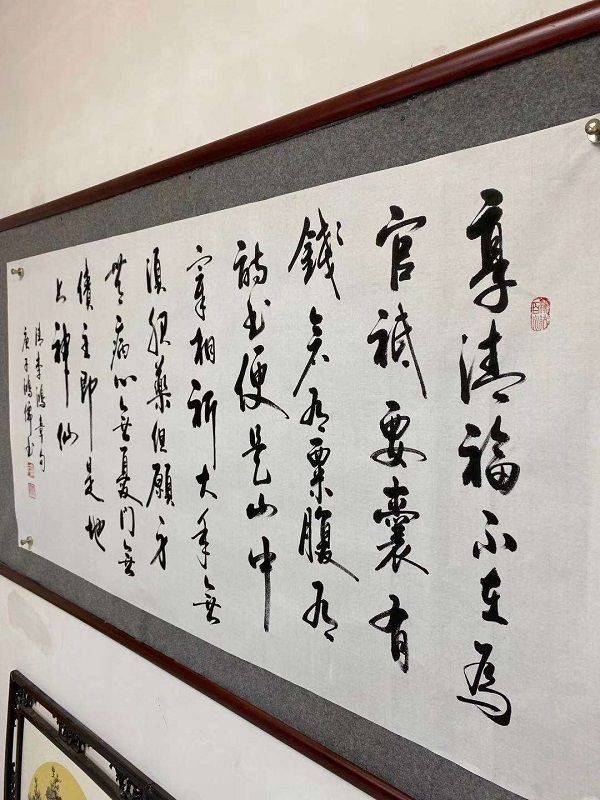 享清福不在為
官祗要囊有
錢倉有粟腹有
詩書便是山中
宰相祈大年無
須服藥但願身
無病心無憂門無
債主即是地
上神仙
清李鴻章句
庚子鴻儒書